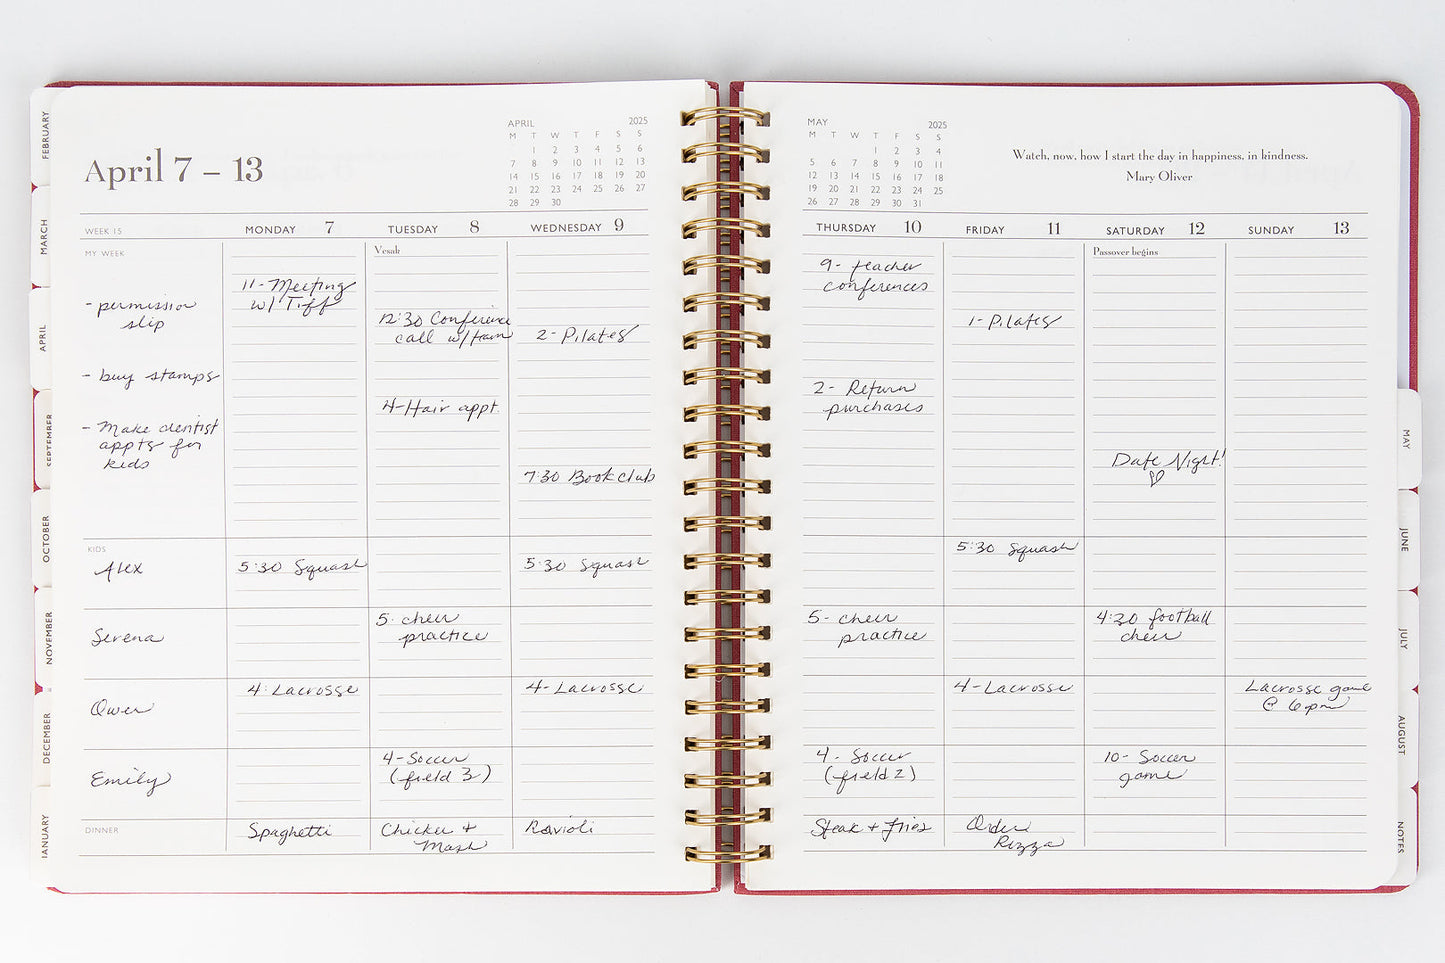 FEBRUARY
MARCH
APRIL
SEPTEMBER
OCTOBER
NOVEMBER
DECEMBER
JANUARY
April 7 – 13
APRIL 2025
M T W T F S S
1 2 3 4 5 6
7 8 9 10 11 12 13
14 15 16 17 18 19 20
21 22 23 24 25 26 27
28 29 30
WEEK 15
MONDAY 7
TUESDAY 8
WEDNESDAY 9
MY WEEK
- permission
slip
- buy stamps
- Make dentist
appts for
kids
11 - Meeting
w/ Tiff
Vesak
12:30 Conference
call w/team
4-Hair appt.
2 - Pilates
7:30 Book club
KIDS
Alex
5:30 Squash
5:30 Squash
Serena
5. cheer
practice
Owen
4: Lacrosse
4- Lacrosse
Emily
4-Soccer
(field 3)
DINNER
Spaghetti
Chicken +
Mash
Ravioli
MAY 2025
M T W T F S S
1 2 3 4
5 6 7 8 9 10 11
12 13 14 15 16 17 18
19 20 21 22 23 24 25
26 27 28 29 30 31
Watch, now, how I start the day in happiness, in kindness.
Mary Oliver
THURSDAY 10
FRIDAY 11
SATURDAY 12
SUNDAY 13
9- teacher
conferences
2- Return
purchases
1- Pilates
Passover begins
Date Night!
5:30 Squash
5- cheer
practice
4:30 football
cheer
4-Lacrosse
Lacrosse game
@ 6pm
4- Soccer
(field 2)
10- Soccer
game
Steak + fries
Order
Pizza
MAY
JUNE
JULY
AUGUST
NOTES